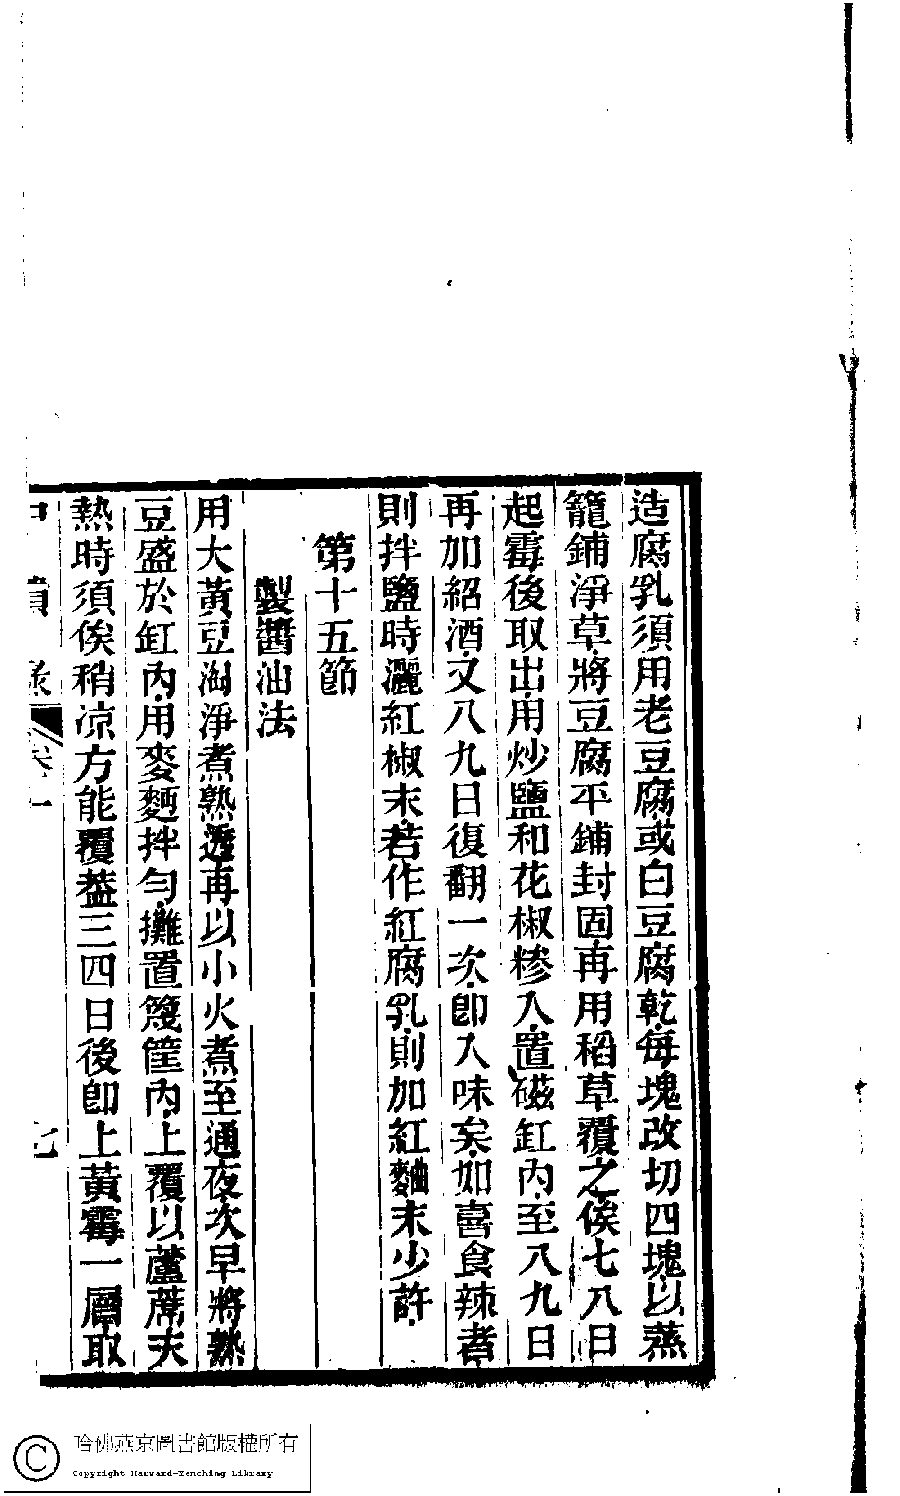 造腐乳須用老豆腐或白豆腐乾每塊改切四塊以蒸
籠鋪淨草將豆腐平鋪封固再用稻草覆之俟七八日
起霉後取出用炒鹽和花椒糝入置磁缸內至八九日
再加紹酒又八九日復翻一次卽入味矣如喜食辣者
則拌鹽時灑紅椒末若作紅腐乳則加紅麯末少許
第十五節
製醬油法
用大黃豆淘淨煮熟透再以小火煮至通夜次早將熟
豆盛於缸內用麥麪拌勻攤置篾筐內上覆以蘆蓆天
熱時須俟稍凉方能覆葢三四日後卽上黃霉一層取
卷一
七
哈佛燕京圖書館版權所有
Copyright Harvard-Yenching Library